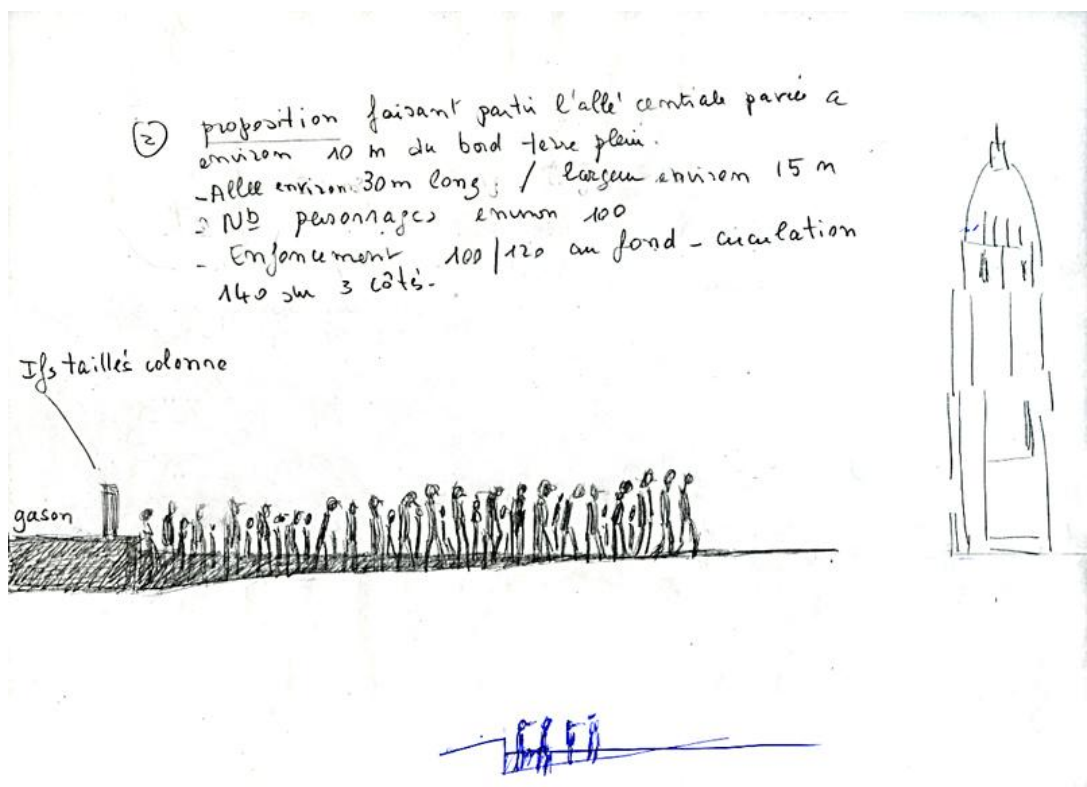 ② proposition faisant partir l'allé centrale pavée a
environ 10 m du bord terre plein.
- Allée environ 30m long; / largeur environ 15 m
- Nb personnages environ 100
- Enfoncement 100/120 au fond - circulation
140 sur 3 côtés.
Ifs taillés colonne
gason